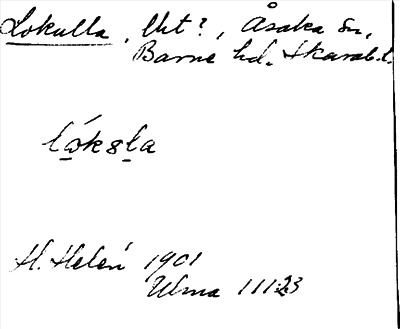 Lokulla, Uht?, Åsaka sn,
Barne hd. Skarab.l.
lóksla
H. Helén 1901
Ulma 111:23